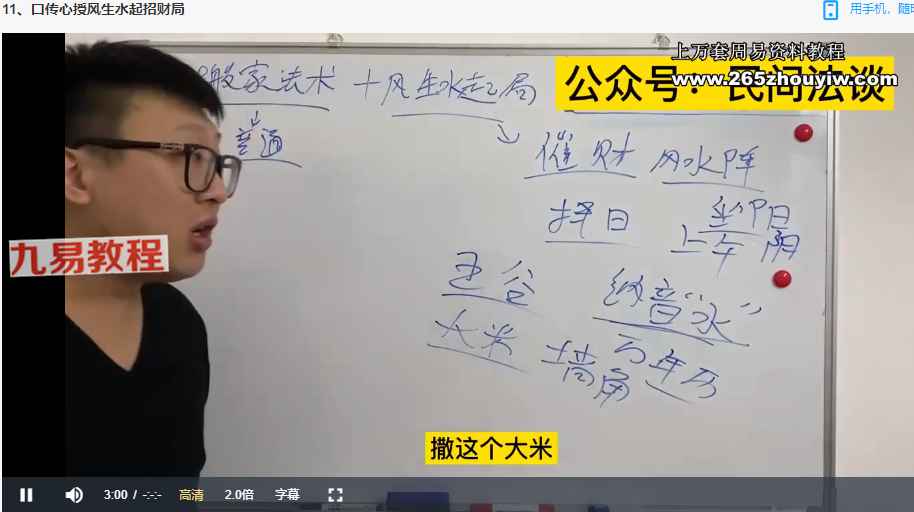 11、口传心授风生水起招财局
用手机，随时
上万套周易资料教程
www.265zhouyiw.com
公众号：民间法谈
搬家法术 + 风生水起局
普通
催财 风水阵
择日
上午 阴
五谷
纳音“水”
大米
墙角
万年历
九易教程
撒这个大米
3:00 / -:-:-
高清
2.0倍
字幕